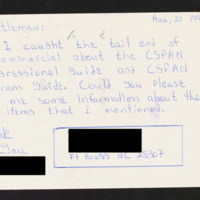 Aug, 21 199
tlemen:
I caught the tail end of
commercial about the CSPAN
gressional Guide and CSPAN
ram Guide. Could you please
me some information about the
items that I mentioned.
You
Ft Bragg NC 28307